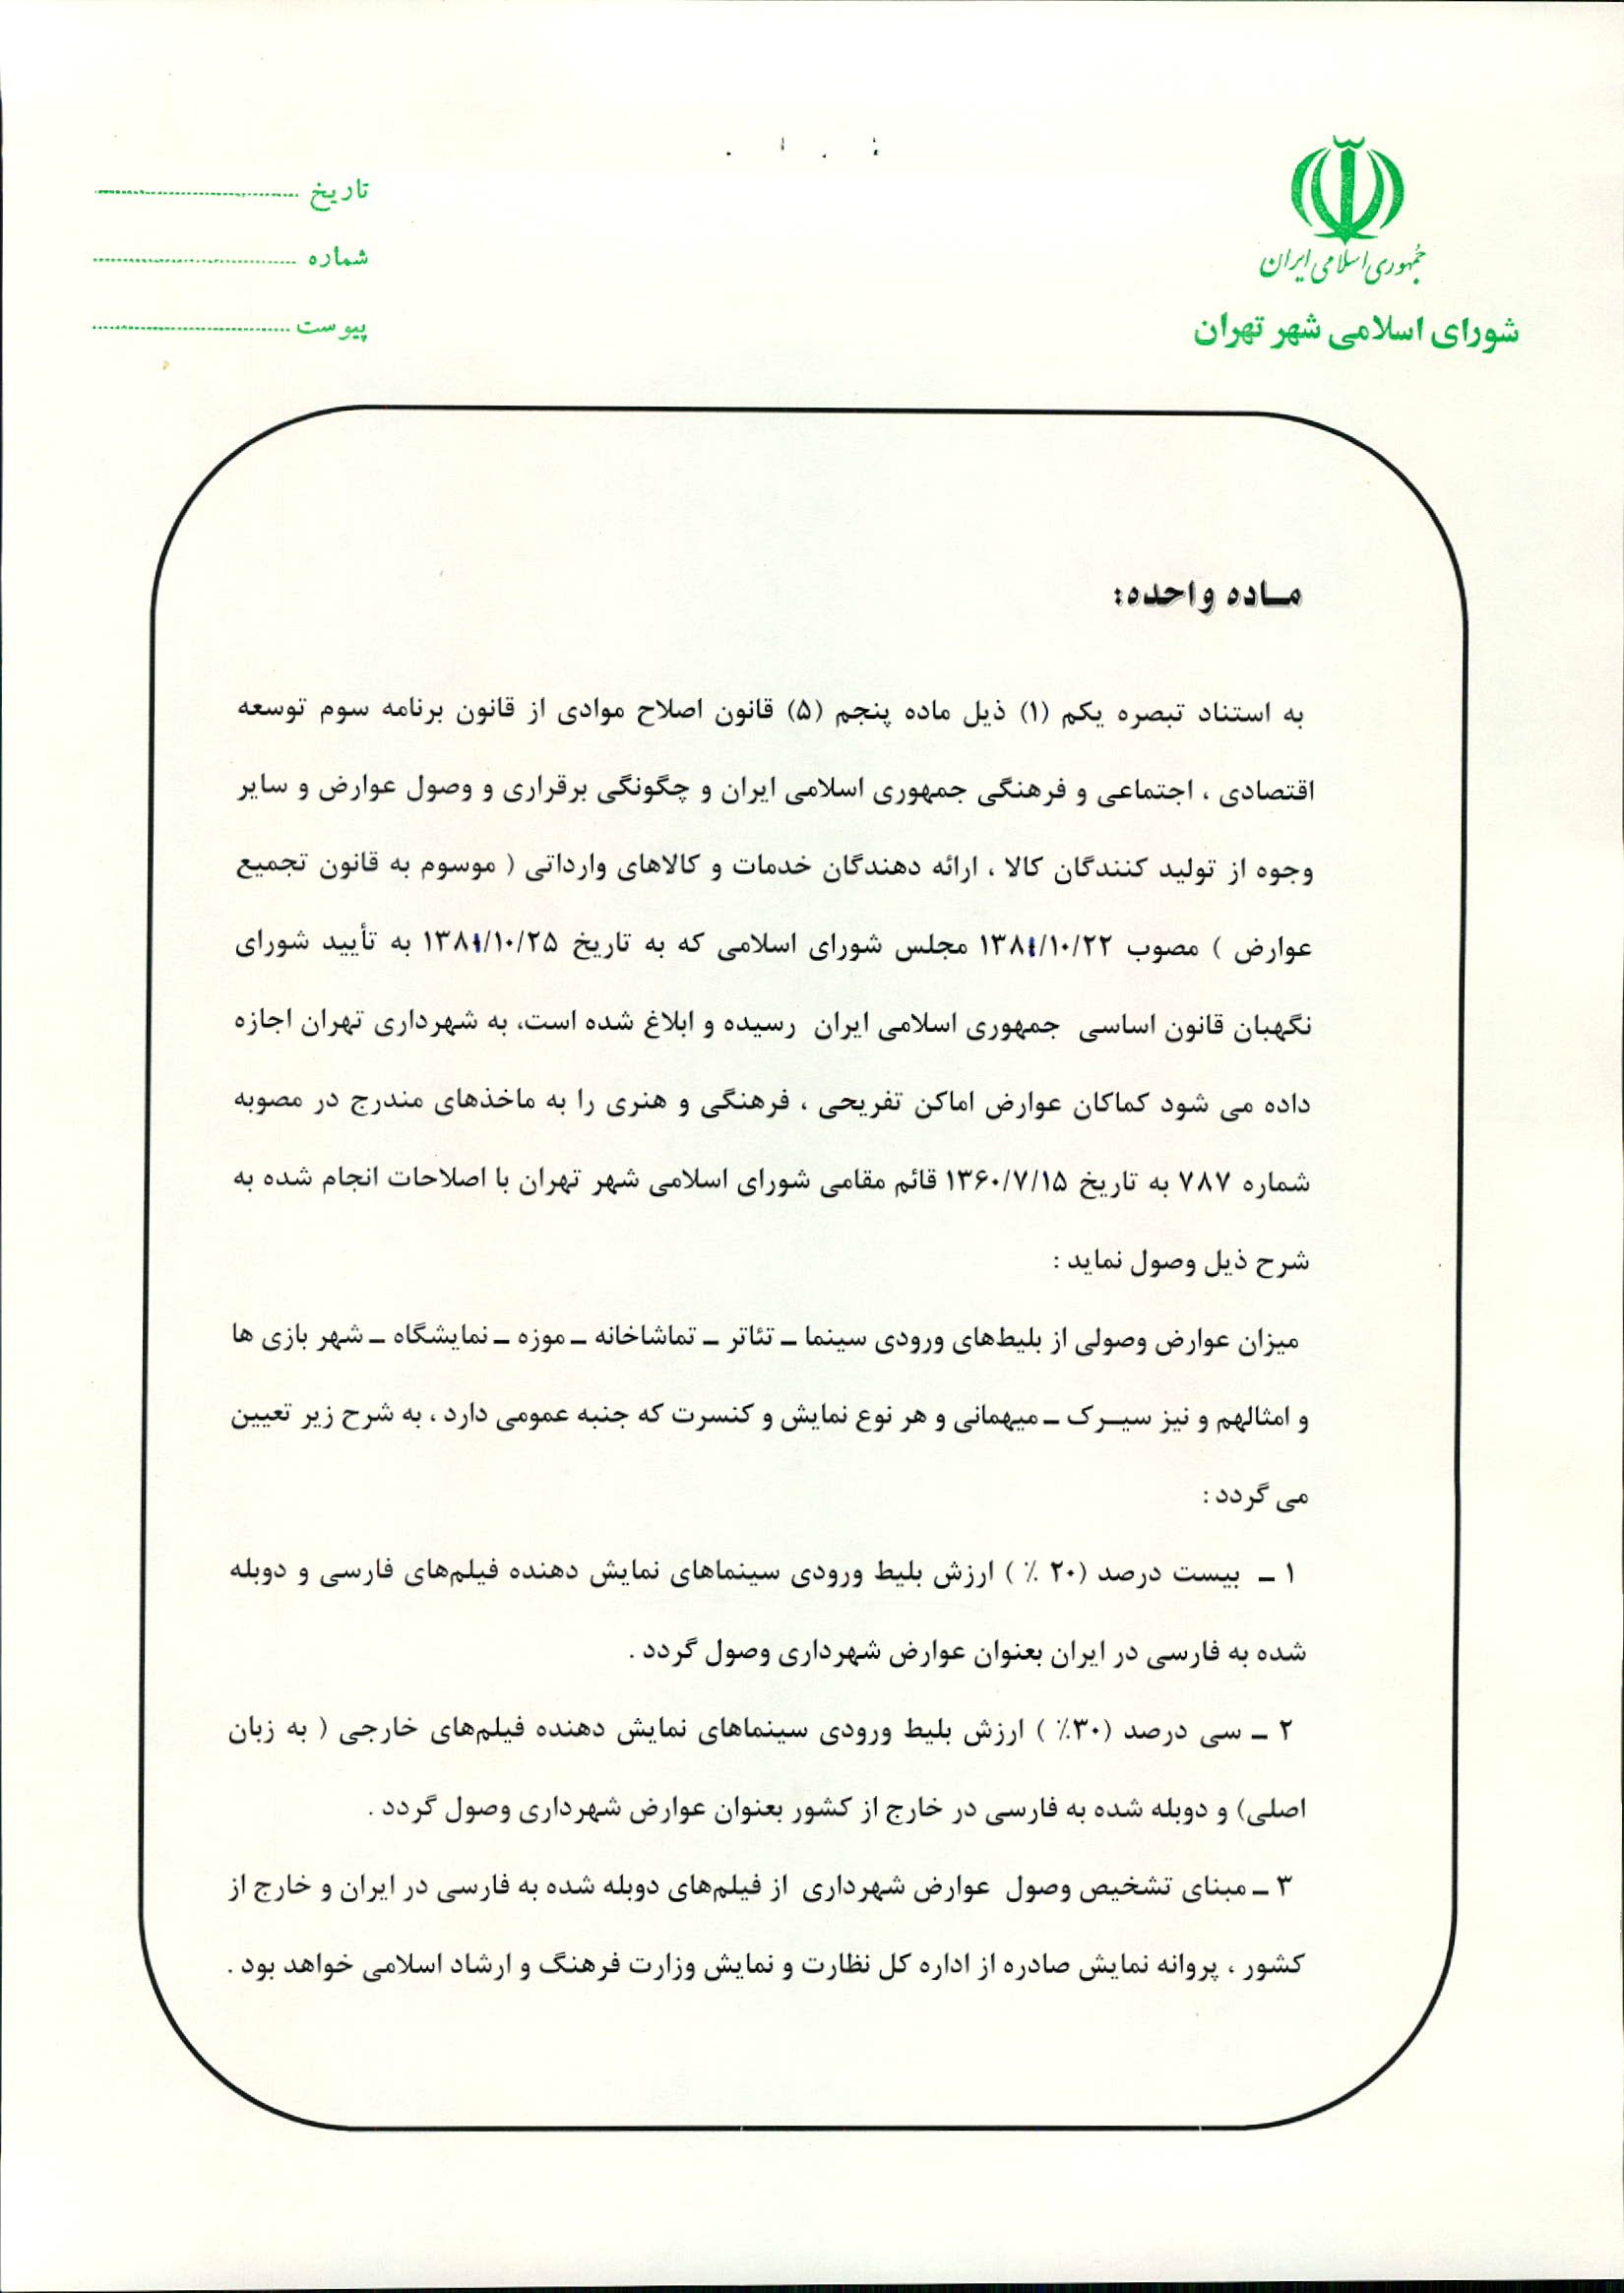 جمهوری اسلامی ایران
شورای اسلامی شهر تهران
تاریخ
شماره
پیوست
مـاده واحده:
به استناد تبصره یکم (۱) ذیل ماده پنجم (۵) قانون اصلاح موادی از قانون برنامه سوم توسعه
اقتصادی ، اجتماعی و فرهنگی جمهوری اسلامی ایران و چگونگی برقراری و وصول عوارض و سایر
وجوه از تولید کنندگان کالا ، ارائه دهندگان خدمات و کالاهای وارداتی ( موسوم به قانون تجمیع
عوارض ) مصوب ۱۳۸۱/۱۰/۲۲ مجلس شورای اسلامی که به تاریخ ۱۳۸۱/۱۰/۲۵ به تأیید شورای
نگهبان قانون اساسی جمهوری اسلامی ایران رسیده و ابلاغ شده است، به شهرداری تهران اجازه
داده می شود کماکان عوارض اماکن تفریحی ، فرهنگی و هنری را به ماخذهای مندرج در مصوبه
شماره ۷۸۷ به تاریخ ۱۳۶۰/۷/۱۵ قائم مقامی شورای اسلامی شهر تهران با اصلاحات انجام شده به
شرح ذیل وصول نماید :
میزان عوارض وصولی از بلیط‌های ورودی سینما ـ تئاتر ـ تماشاخانه ـ موزه ـ نمایشگاه ـ شهر بازی ها
و امثالهم و نیز سیـرک ـ میهمانی و هر نوع نمایش و کنسرت که جنبه عمومی دارد ، به شرح زیر تعیین
می گردد :
۱ ـ بیست درصد (۲۰ ٪ ) ارزش بلیط ورودی سینماهای نمایش دهنده فیلم‌های فارسی و دوبله
شده به فارسی در ایران بعنوان عوارض شهرداری وصول گردد .
۲ ـ سی درصد (۳۰٪ ) ارزش بلیط ورودی سینماهای نمایش دهنده فیلم‌های خارجی ( به زبان
اصلی) و دوبله شده به فارسی در خارج از کشور بعنوان عوارض شهرداری وصول گردد .
۳ ـ مبنای تشخیص وصول عوارض شهرداری از فیلم‌های دوبله شده به فارسی در ایران و خارج از
کشور ، پروانه نمایش صادره از اداره کل نظارت و نمایش وزارت فرهنگ و ارشاد اسلامی خواهد بود .